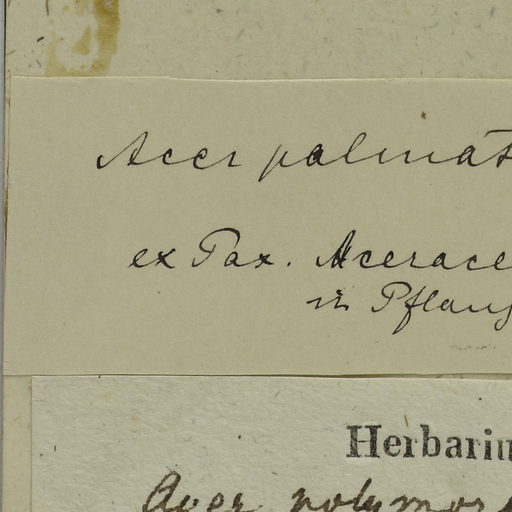 Acer palmat
ex Pax. Acerace
in Pflanz
Herbariu
Acer polymor